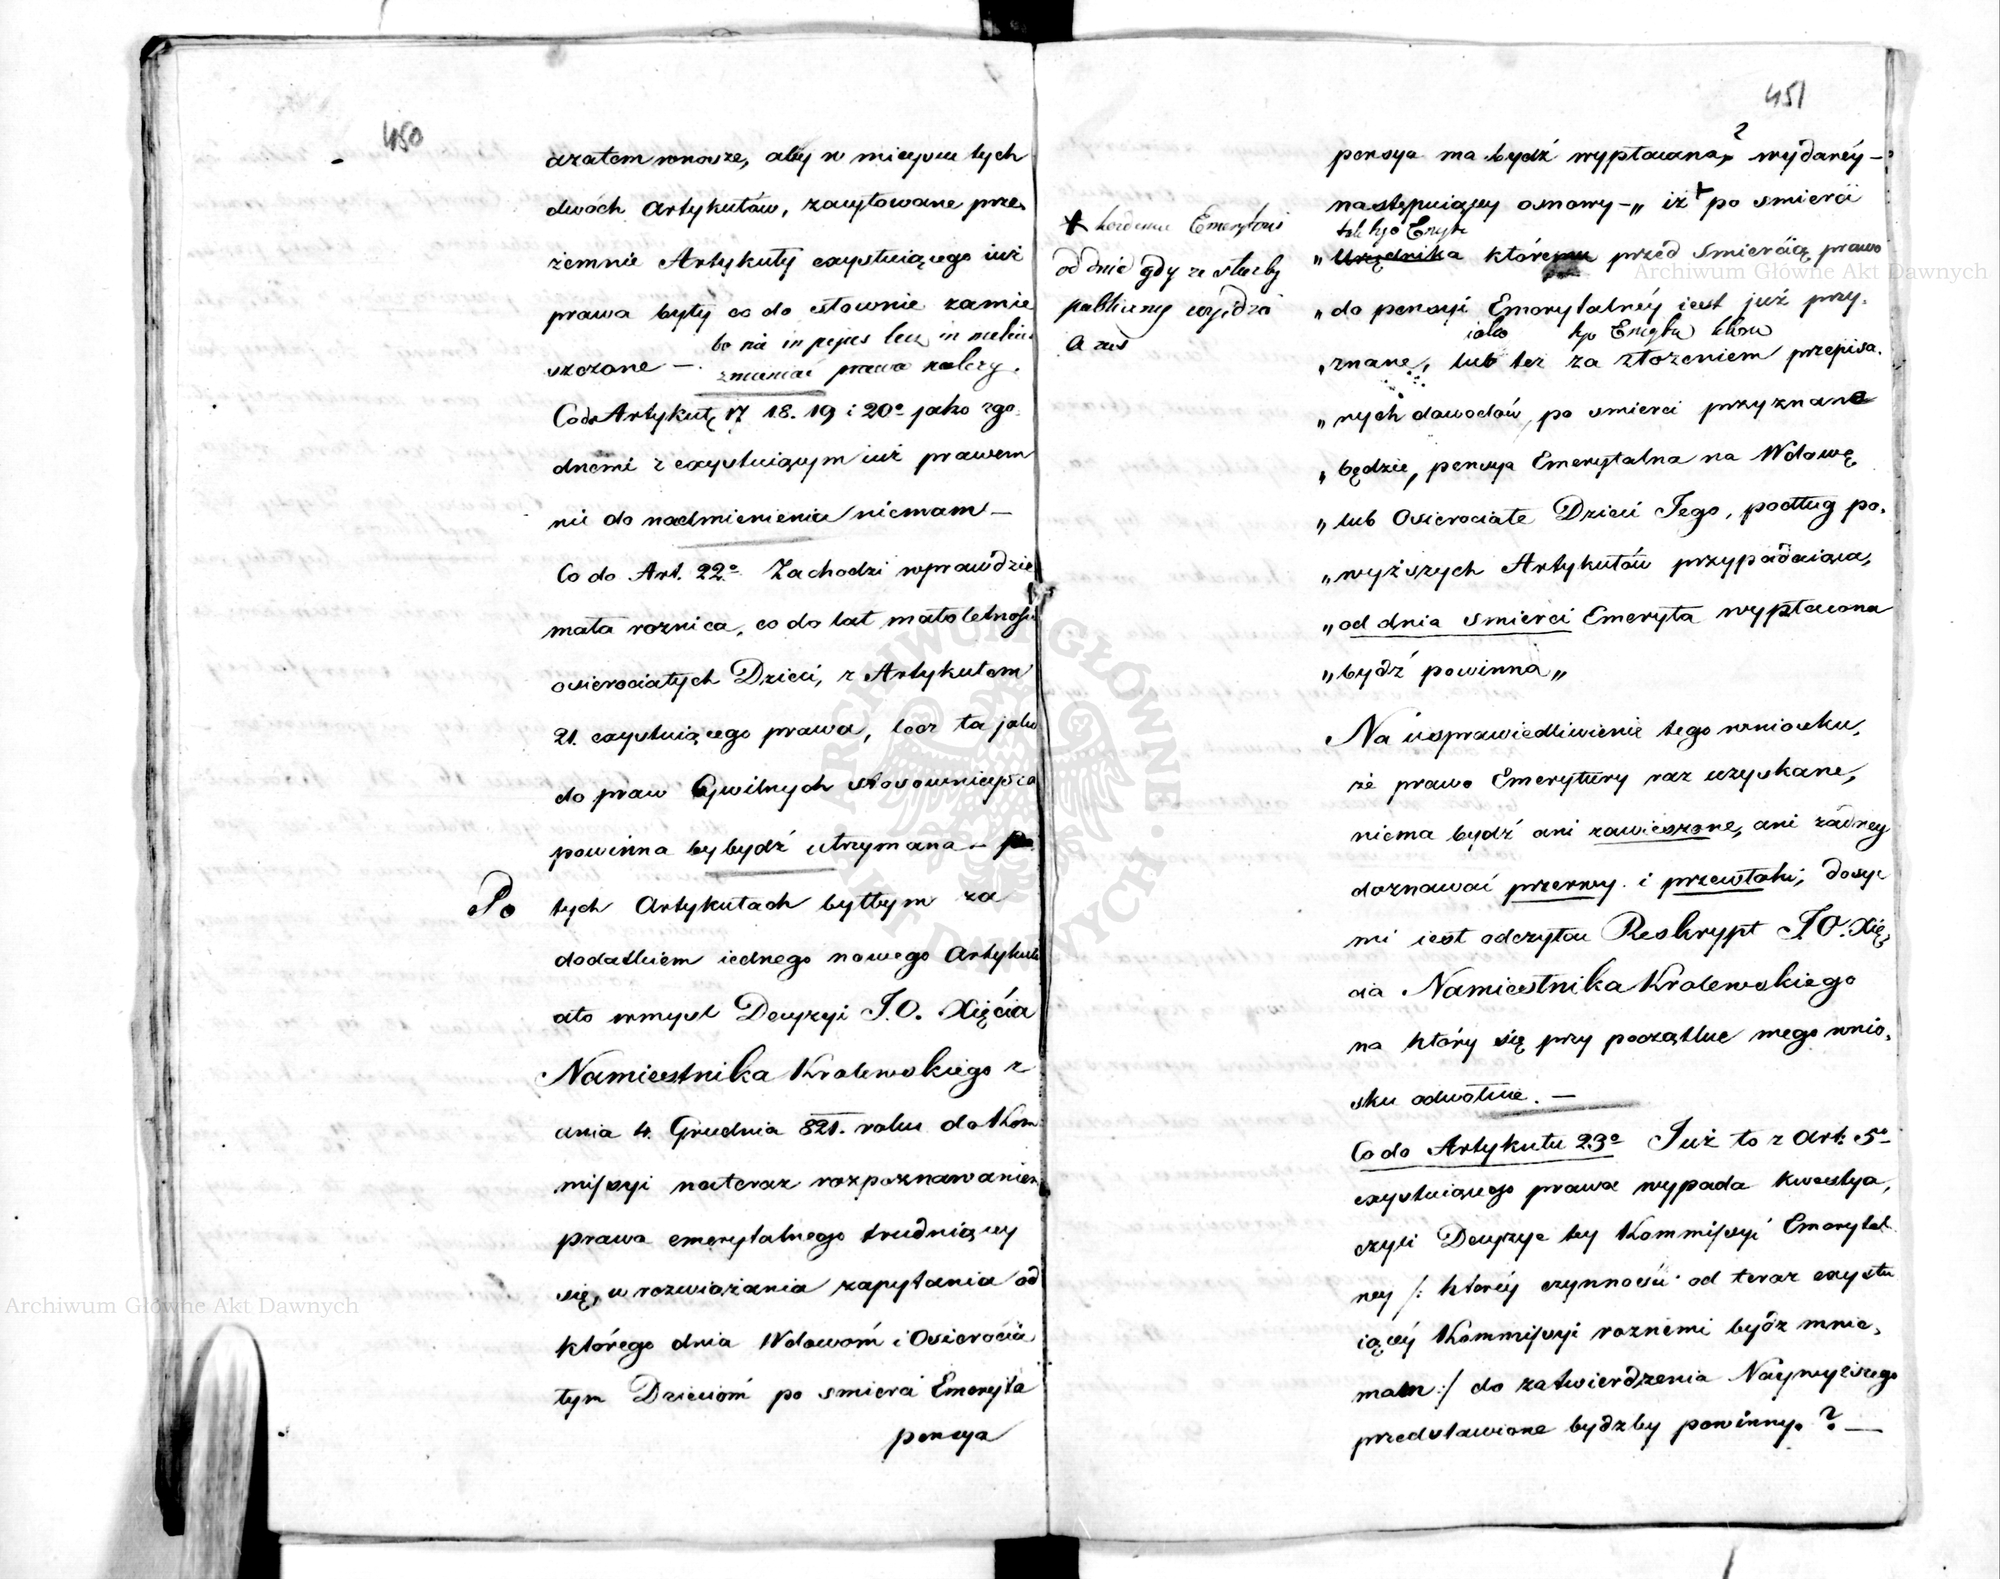 450
azatem wnoszę, aby w mieyscu tych
dwóch Artykułów, zacytowane prze
zemnie Artykuły exystuiącego iuż
prawa były co do słownie zamie
szczone —
bo nie in pejus lecz in melius
zmieniać prawa należy.
Co do Artykułu 17 18. 19 i 20º jako zgo
dnemi z exystuiącym iuż prawem
nic do nadmienienia niemam —
Co do Art. 22º Zachodzi wprawdzie
mała roznica, co do lat małoletnosci
osierociałych Dzieci, z Artykułem
21. exystuiącego prawa, lecz ta jako
do praw Cywilnych stosownieysza
powinna by bydź utrzymana —
Po tych Artykułach byłbym za
dodatkiem iednego nowego Artykułu
ato wmysl Decyzyi J.O. Xięcia
Namiestnika Krolewskiego z
dnia 4. Grudnia 821. roku do Kom
missyi na teraz rozpoznawaniem
prawa emerytalnego trudniącey
się, w rozwiązania zapytania od
którego dnia Wdowom i Osierocia
łym Dzieciom po smierci Emeryta
pensya
451
pensya ma bydź wypłacana, wydaney —
następuiącey osnowy — „ iż po smierci
✱ każdemu Emerytowi
od dnia gdy ze służby
publiczney wyidzie
a zas
„ Urzędnika któremu przed smiercią prawo
„ do pensyi Emerytalney iest już przy.
„ znane, lub też za złożeniem przepisa.
„ nych dowodów, po smierci przyznane
„ będzie, pensya Emerytalna na Wdowę
„ lub Osierociałe Dzieci Jego, podług po.
„ wyższych Artykułów przypadaiąca,
„ od dnia smierci Emeryta wypłacona
„ bydź powinna „
Na usprawiedliwienie tego wniosku,
że prawo Emerytury raz uzyskane,
niema bydź ani zawieszone, ani żadney
doznawać przerwy i przewłoki; dosyć
mi iest odczytać Reskrypt J.O. Xię,
cia Namiestnika Krolewskiego
na który się przy początku mego wnio.
sku odwołuie. —
Co do Artykułu 23º Już to z Art. 5º
exystuiącego prawa wypada kwestya,
czyli Decyzye tey Kommissyi Emerytal
ney /: ktorey czynnosci od teraz exystu
iącey Kommissyi roznemi bydź mnie,
mam :/ do zatwierdzenia Naywyższego
przedstawione bydźby powinny. ? —
Archiwum Główne Akt Dawnych
Archiwum Główne Akt Dawnych
ARCHIWUM GŁÓWNE AKT DAWNYCH